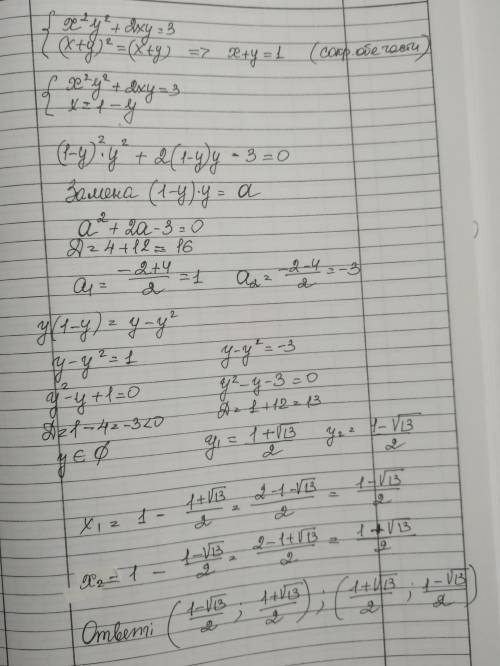 x²y² + 2xy = 3
(x+y)² = (x+y) => x+y = 1 (сокр. обе части)
x²y² + 2xy = 3
x = 1 - y
(1-y)²·y² + 2(1-y)y - 3 = 0
Замена (1-y)·y = a
a² + 2a - 3 = 0
D = 4 + 12 = 16
a₁ = (-2+4)/2 = 1 a₂ = (-2-4)/2 = -3
y(1-y) = y - y²
y - y² = 1 y - y² = -3
y² - y + 1 = 0 y² - y - 3 = 0
D = 1 - 4 = -3 < 0 D = 1 + 12 = 13
y ∈ ∅ y₁ = (1+√13)/2 y₂ = (1-√13)/2
x₁ = 1 - (1+√13)/2 = (2-1-√13)/2 = (1-√13)/2
x₂ = 1 - (1-√13)/2 = (2-1+√13)/2 = (1+√13)/2
Ответ: ((1-√13)/2 ; (1+√13)/2) ; ((1+√13)/2 ; (1-√13)/2)